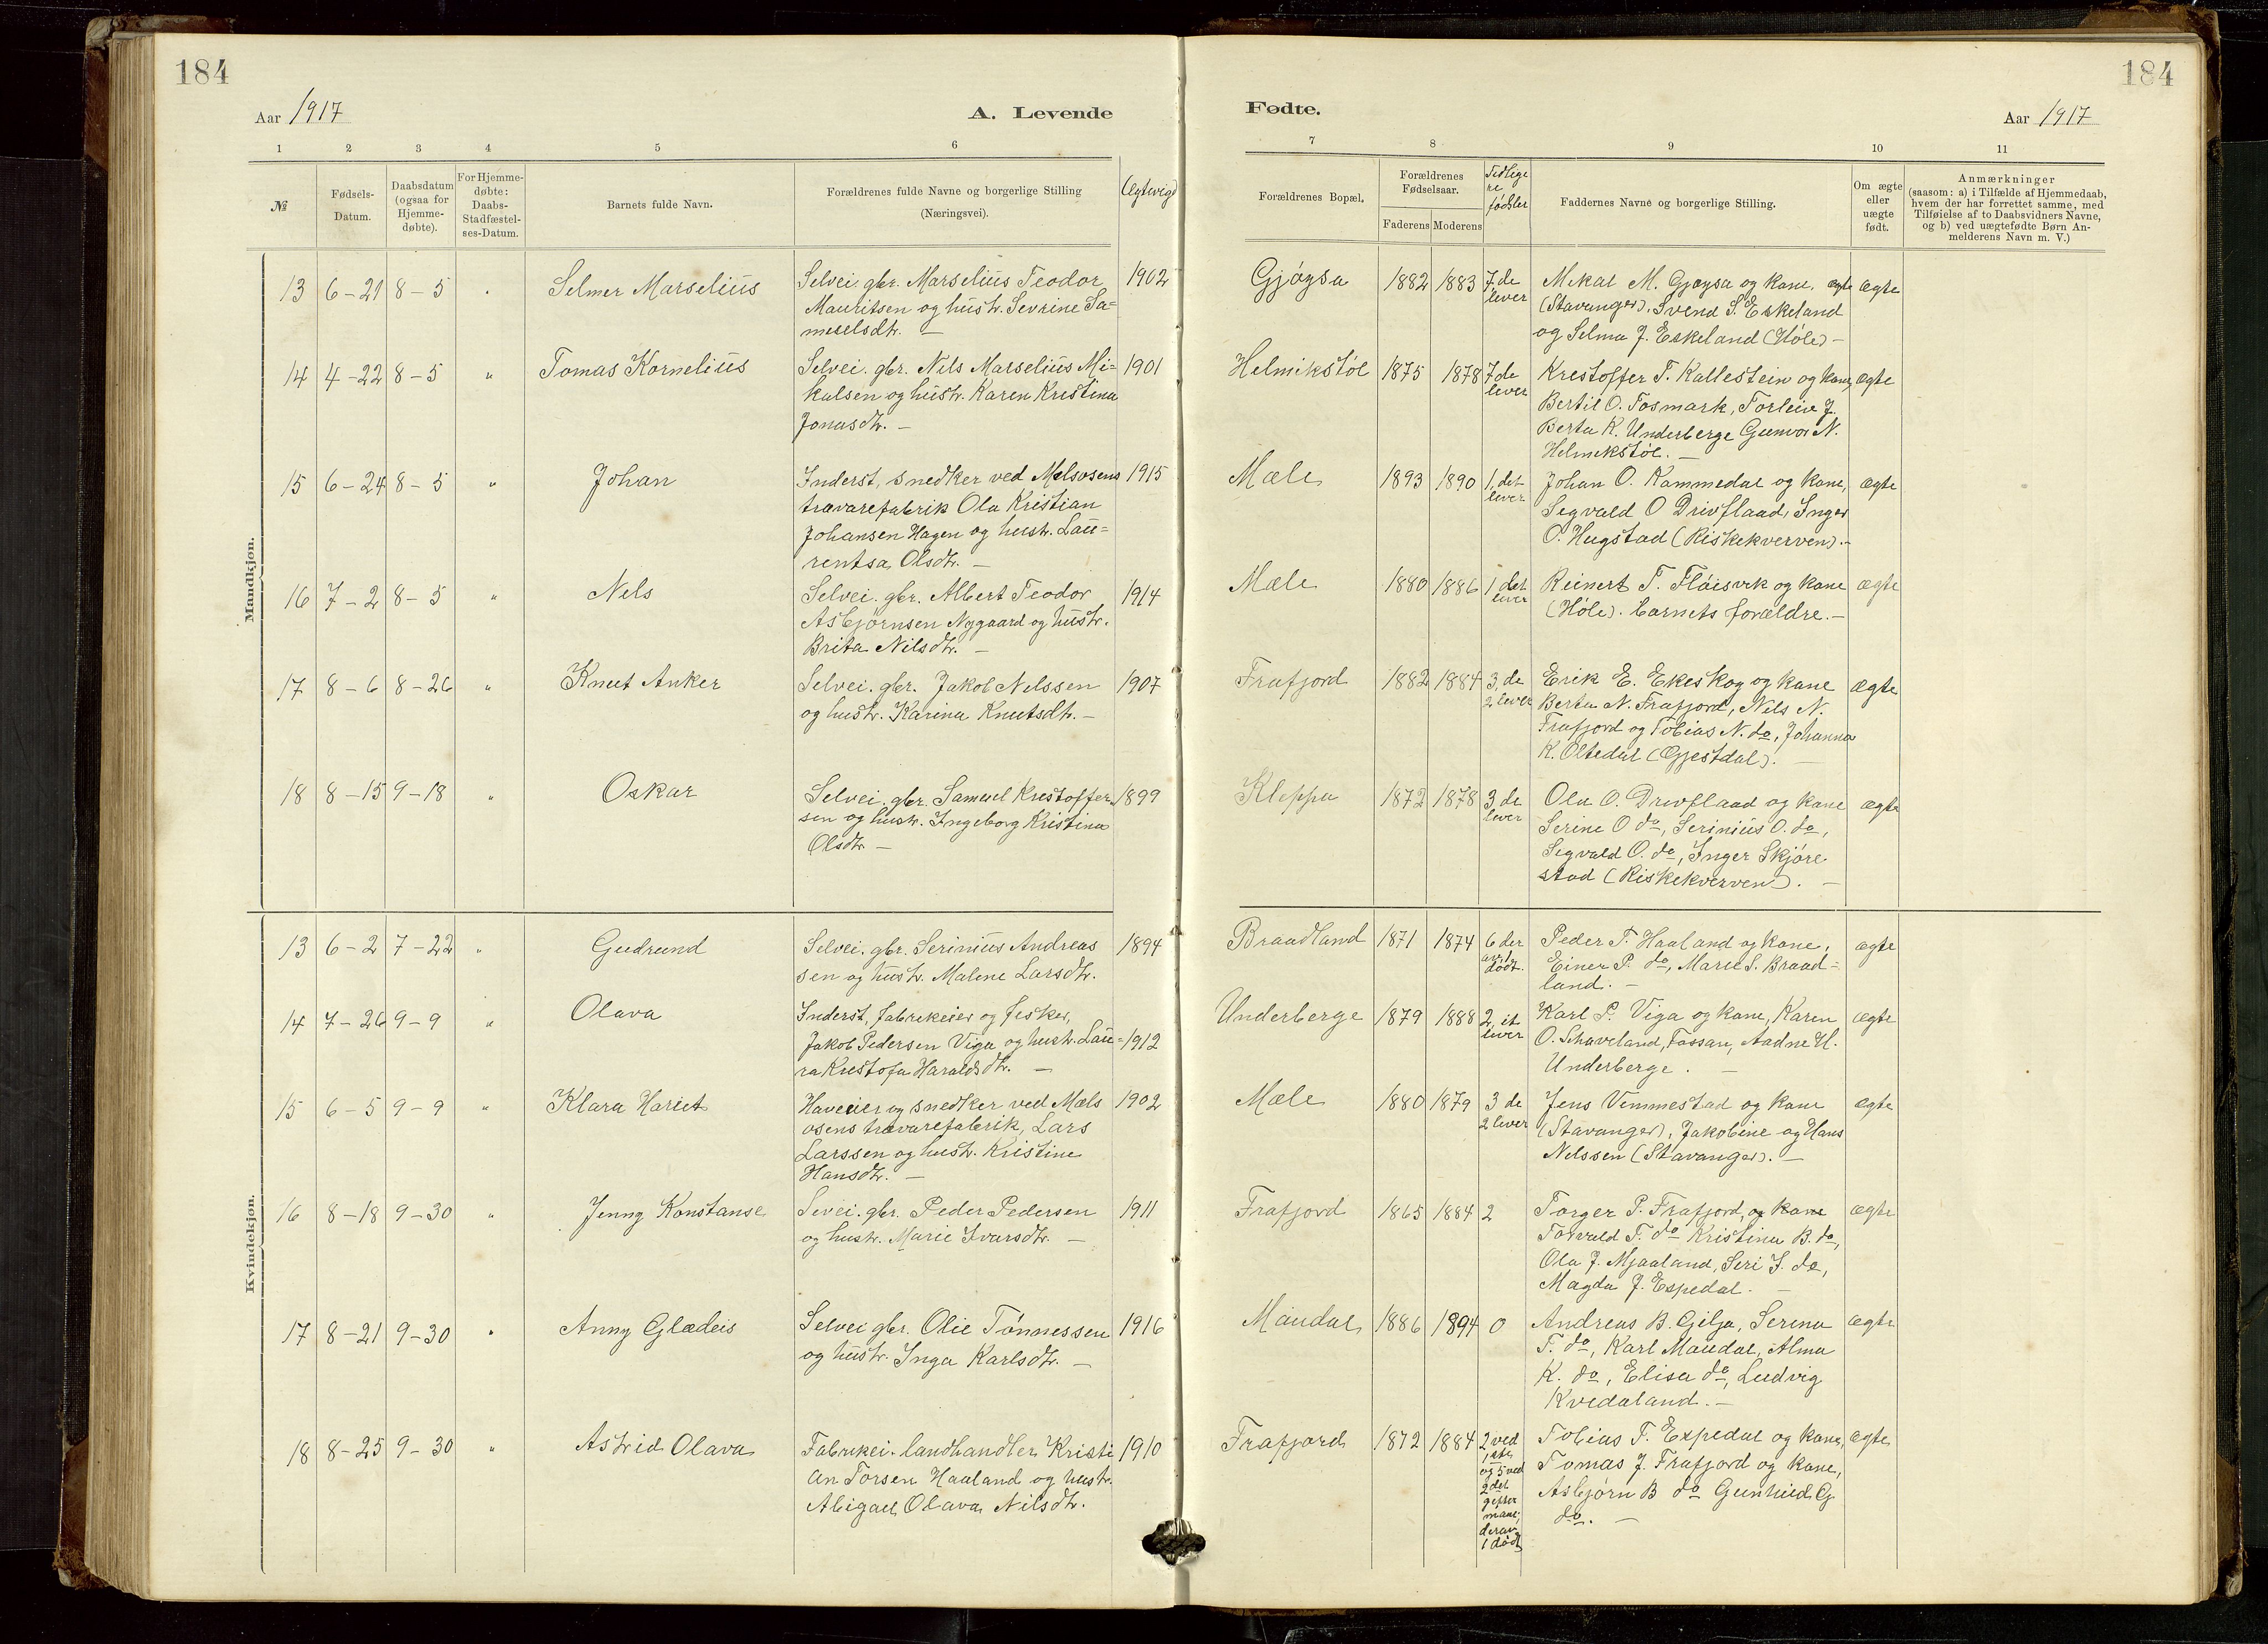 184
184
Aar 1917
A. Levende
Fødte.
Aar 1917
1 2 3 4 5 6
7 8 9 10 11
№
Fødsels-
Datum.
Daabsdatum
(ogsaa for
Hjemme-
døbte).
For Hjemme-
døbte:
Daabs-
Stadfæstel-
ses-Datum.
Barnets fulde Navn.
Forældrenes fulde Navne og borgerlige Stilling
(Næringsvei).
(Ægtevig)
Forældrenes Bopæl.
Forældrenes
Fødselsaar.
Faderens Moderens
Tidlige
re
fødsler
Faddernes Navne og borgerlige Stilling.
Om ægte
eller
uægte
født.
Anmærkninger
(saasom: a) i Tilfælde af Hjemmedaab,
hvem der har forrettet samme, med
Tilføielse af to Daabsvidners Navne,
og b) ved uægtefødte Børn An-
melderens Navn m. V.)
Mandkjøn.
13 6-21 8-5 Selmer Marselius
Selvei. gbr. Marselius Teodor
Mauritsen og hustr. Sevrine Sa-
muelsdtr. —
1902 Gjøysa 1882 1883
7, de
lever
Mikal M. Gjøysa og kone, ægte
(Stavanger), Svend S. Eskeland
og Selma J. Eskeland (Høle) —
ægte
14 4-22 8-5 " Tomas Kornelius
Selvei. gbr. Nils Marselius Mi-
kalsen og hustr. Karen Kristina
Jonasdtr. —
1901 Helmikstøl 1875 1878
7 de
lever
Kristoffer T. Kallestein og kone,
Bertil O. Fosmark, Torleiv J.
Berta K. Underberge Gunvor N.
Helmikstøl. —
ægte
15 6-24 8-5 " Johan
Inderst, snedker ved Mælsosens
trævarefabrik Ola Kristian
Johansen Hagen og hustr. Lau-
rentsa Olsdtr. —
1915 Mæle 1893 1890
1, det
lever
Johan O. Kommedal og kone,
Sigvald O Drivflaad, Inger
O. Hugstad (Riskekverven). —
ægte
16 7-2 8-5 " Nils
Selvei. gbr. Albert Teodor
Asbjørnsen Nygaard og hustr.
Brita Nilsdtr. —
1914 Mæle 1880 1886
1 det
lever
Reinert T. Fløisvik og kone
(Høle). barnets forældre. —
ægte
17 8-6 8-26 " Knut Anker
Selvei. gbr. Jakob Nilssen
og hustr. Karina Knutsdtr. —
1907 Frafjord 1882 1884
3, de
2 lever
Erik E. Ekeskog og kone
Berta N. Frafjord, Nils N.
Frafjord og Tobias N. do, Johanna
K. Oltedal (Gjestdal). —
ægte
18 8-15 9-18 " Oskar
Selvei. gbr. Samuel Kristoffer
sen og hustr. Ingeborg Kristina
Olsdtr —
1899 Kleppa 1872 1878
3 de
lever
Ola O. Drivflaad og kone
Serine O do, Serinius O. do,
Sigvald O. do, Inger Skjøre
stad (Riskekverven). —
ægte
Kvindekjøn.
13 6-2 7-22 " Gudrund
Selvei. gbr. Serinius Andreas
sen og hustr. Malene Larsdtr.
1894 Braadland 1871 1874
6 der
av 1
dødt.
Peder T. Haaland og kone,
Einer P. do, Marie S. Braad-
land. —
ægte
14 7-26 9-9 " Olava
Inderst, fabrikeier og fisker,
Jakob Pedersen Viga og hustr. Lau-
ra Kristofa Haraldsdtr. —
1912 Underberge 1879 1888
2, it
lever
Karl P. Viga og kone, Karen
O. Schaveland, Fossan, Aadne H.
Underberge. —
ægte
15 6-5 9-9 " Klara Hariet
Haveeier og snedker ved Mæls
osens trævarefabrik, Lars
Larssen og hustr. Kristine
Hansdtr. —
1902 Mæle 1880 1879
3 de
2 lever
Jens Vimmestad og kone
(Stavanger), Jakobine og Hans
Nilssen (Stavanger). —
ægte
16 8-18 9-30 " Jenny Konstanse
Sevei. gbr. Peder Pedersen
og hustr. Marie Ivarsdtr. —
1911 Frafjord 1865 1884 2
Torger P. Frafjord, og kone
Torvald T. do Kristina B. do,
Ola J. Mjaaland, Seri I. do,
Magda J. Espedal. —
ægte
17 8-21 9-30 " Anny Gladeis
Selvei gbr. Olie Tønnessen
og hustr. Inga Karlsdtr. —
1916 Maudal 1886 1894 0
Andreas B. Gilja, Serina
T. do, Karl Maudal, Alma
K. do, Elisa do, Ludvig
Kvedaland. —
ægte
18 8-25 9-30 " Astrid Olava
Fabrikei. landhandler Kristi
an Torsen Haaland og hustr.
Abigael Olava Nilsdtr.
1910 Frafjord 1872 1884
2 ved
1ste
og 5 ved
2det
gifter
maal,
derav
1 død
Tobias T. Espedal og kone,
Tomas J. Frafjord og kone,
Asbjørn B do Gunhild G
do. —
ægte